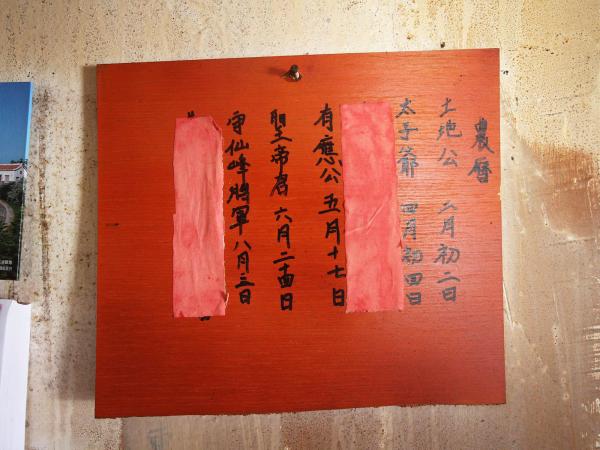 農曆
土地公 二月初二日
太子爺 四月初四日
有應公 五月十七日
聖帝君 六月二十四日
守仙峰將軍 八月三日